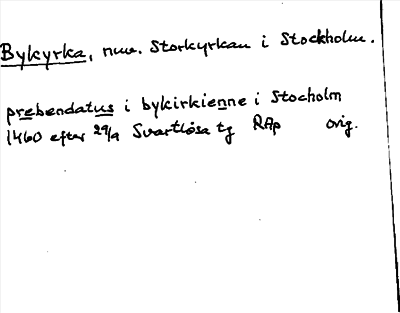 Bykyrka, nuv. Storkyrkan i Stockholm.
prebendatus i bykirkienne i Stocholm
1460 efter 29/9 Svartlösa tg RAp orig.